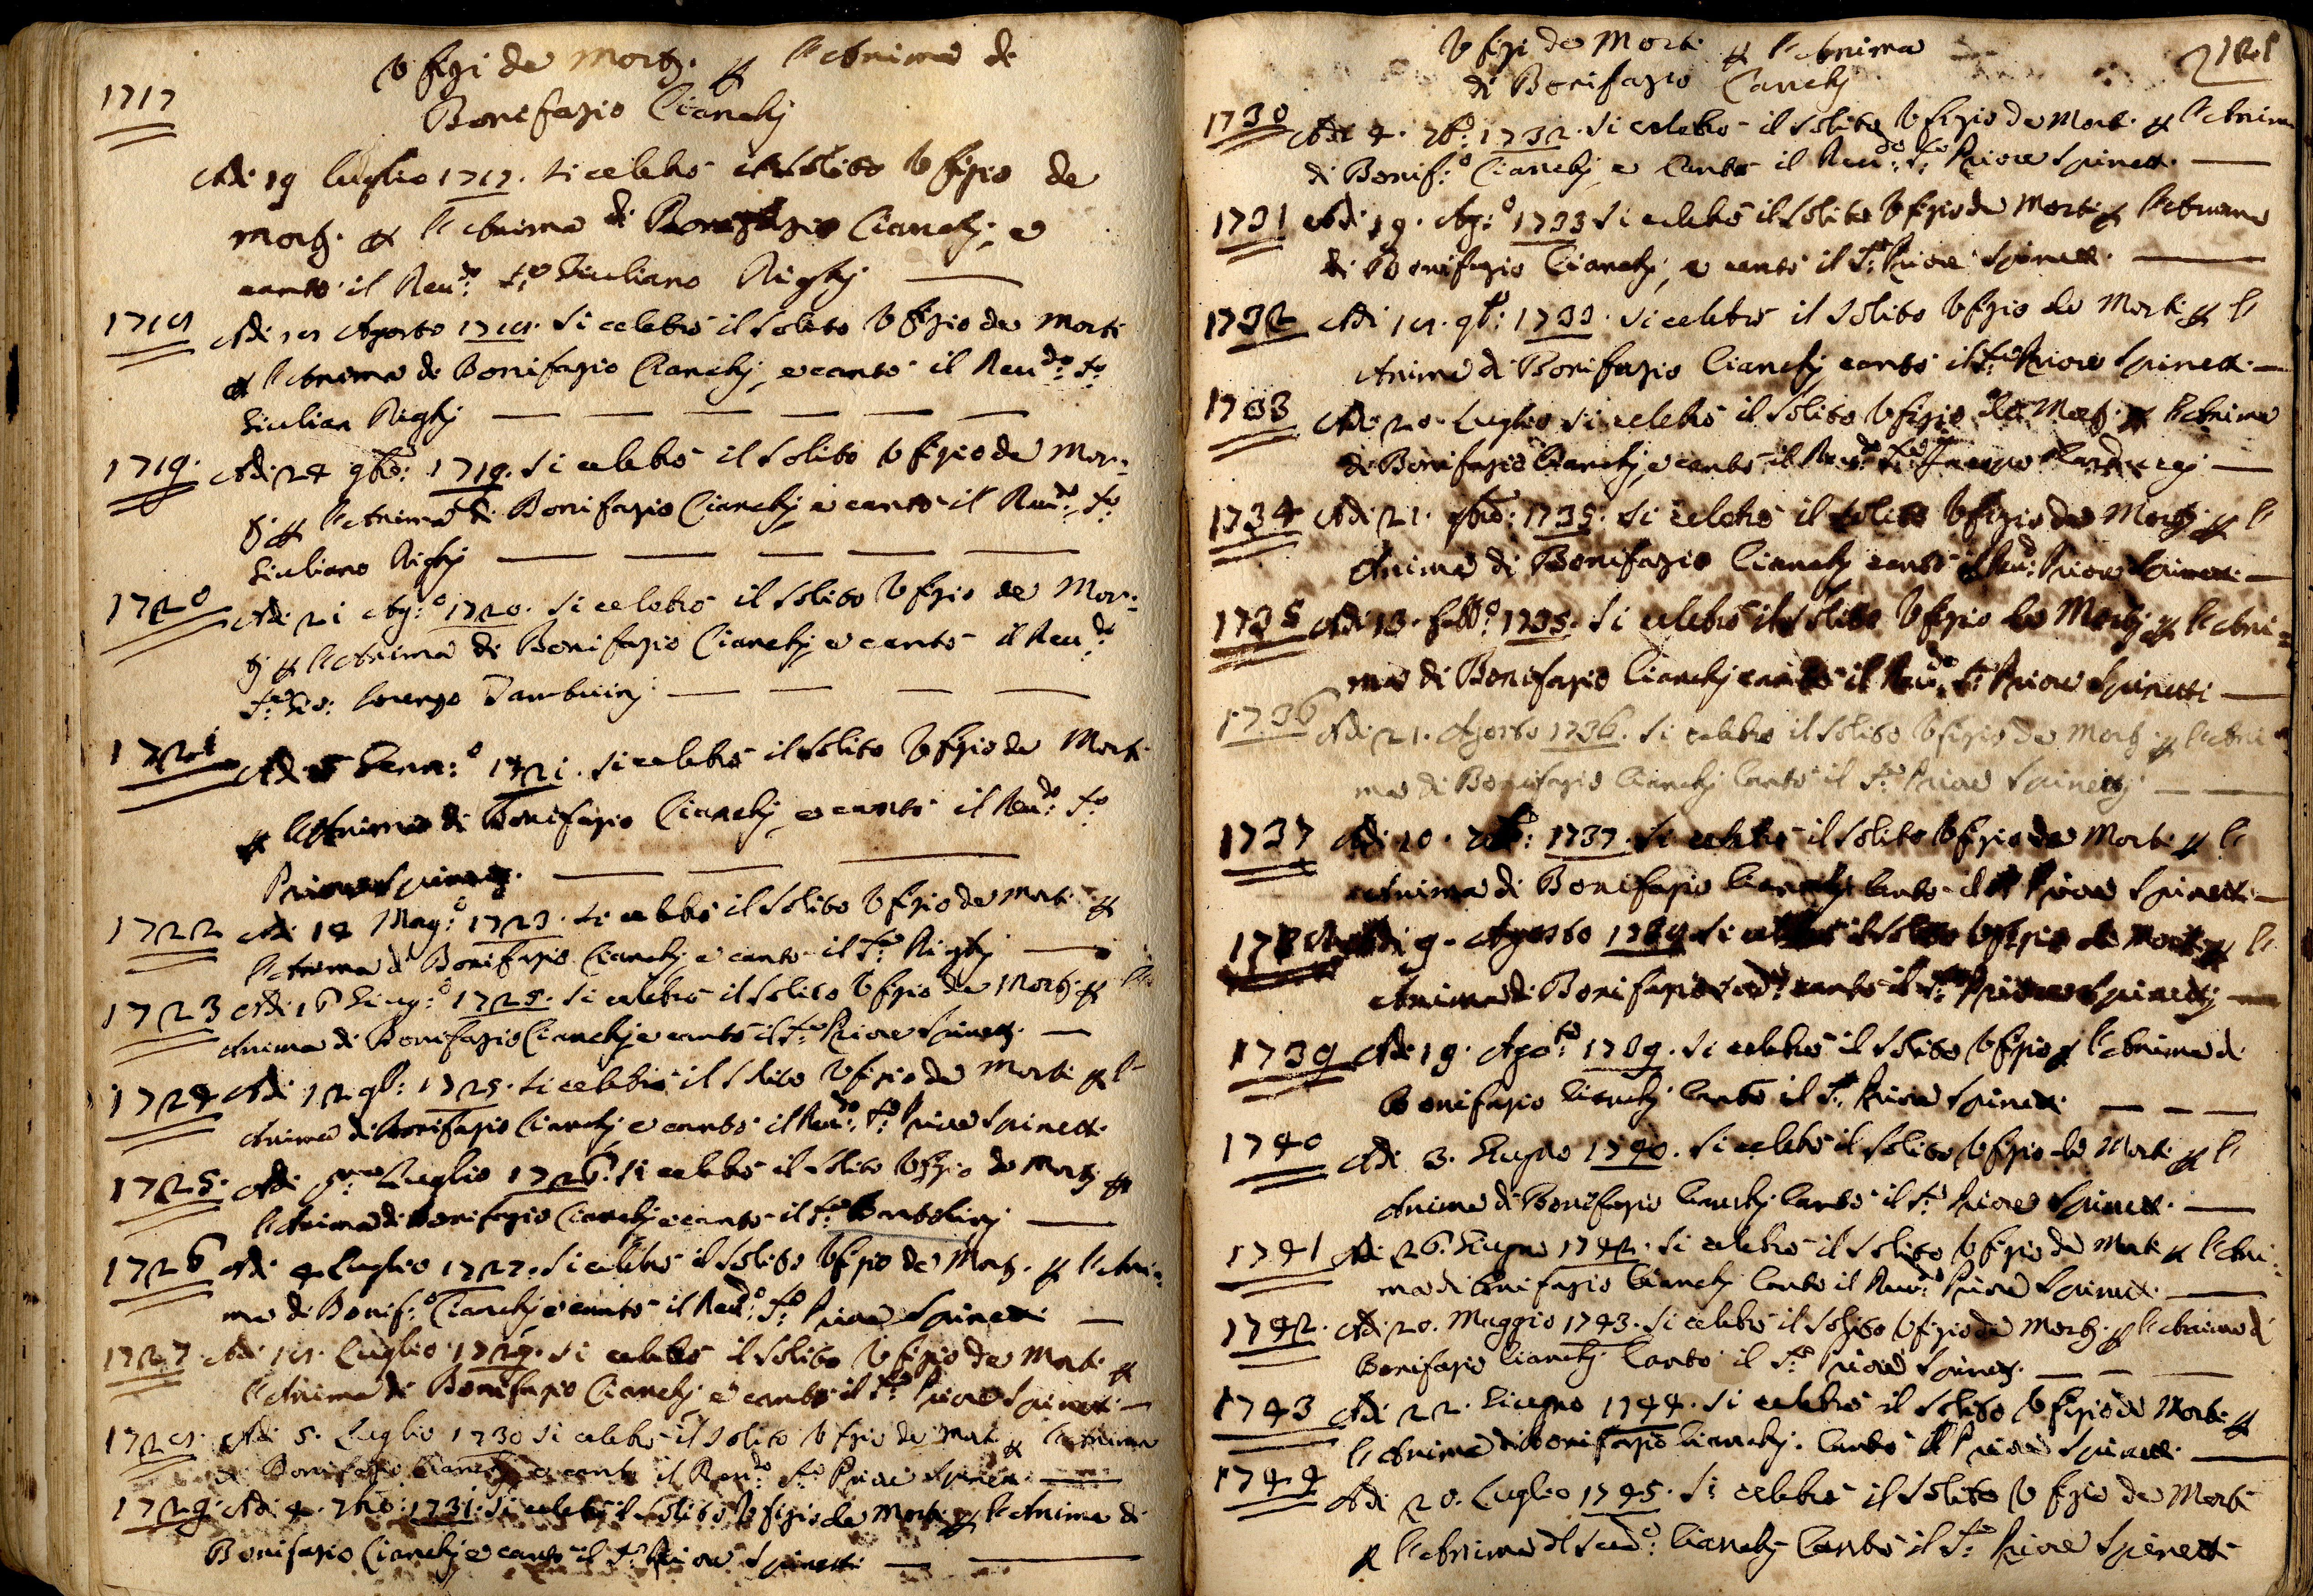 Vfizi da Mortj. p l'Anima di
Bonifazio Cianchj
1717
Adi 19 luglio 1717. si celebrò il solito Vfizio da
Mortj. p l'Anima di Bonifazio Cianchj, e
cantò il Reu:do Sre Giuliano Righj
1718 Adi 18 Agosto 1718. Si celebrò il solito Vfizio da Morti
p l'Anima di Bonifazio Cianchj, e cantò il Reu:do Sre
Giulian Righj
1719. Adi 24 9bre: 1719. Si celebrò il solito Vfizio da Mor=
tj p l'Anima di Bonifazio Cianchj e cantò il Reu:do Sre
Giuliano Righj
1720 Adi 21 Ag:o 1720. Si celebrò il solito Vfizio da Mor=
tj p l'Anima di Bonifazio Cianchj e cantò il Reu:do
Sre Gio: Lorenzo Tamburinj
1721 Adi 5 Genn:o 1721. si celebrò il solito Vfizio da Morti
p l'Anima di Bonifazio Cianchj, e cantò il Reu:do Sre
Priore Spinettj.
1722 Adi 14 Mag:o 1723. Si celebrò il solito Vfizio da Morti p
l'Anima di Bonifazio Cianchj e cantò il Sre Righj
1723 Adi 16 Giug:o 1725. Si celebrò il solito Vfizio da Mortj p l'
Anima di Bonifazio Cianchj e cantò il Sre Priore Spinettj.
1724 Adi 12 9b: 1725. Si celebrò il solito Vfizio da Morti p l'
Anima di Bonifazio Cianchj, e cantò il Reu:do Sre Priore Spinetti.
1725. Adi Luglio 1726. Si celebrò il solito Vfizio da Mortj p
l'Anima di Bonifazio Cianchj e cantò il Sre Bartolinj
1726 Adi 4 Luglio 1727. Si celebrò il solito Vfizio da Mortj. p l'Ani=
ma di Bonif:o Cianchj e cantò il Reu:do Sre Priore Spinetti
1727. Adi 18. Luglio 1729. Si celebrò il solito Vfizio da Morti p
l'Anima di Bonifazio Cianchj, e cantò il Sre Priore Spinetti.
1728. Adi 5. Luglio 1730 Si celebrò il solito Vfizio da Morti p l'Anima
di Bonifazio Cianchj e cantò il Reu:do Sre Priore Spinetti.
1729. Adi 4. 7bre: 1731. Si celebrò il solito Vfizio da Morti p l'Anima di
Bonifazio Cianchj e cantò il Sre Priore Spinetti
Vfizi da Morti p l'Anima
di Bonifazio Cianchj
1730 Adi 4. 7bre: 1732. Si celebrò il solito Vfizio da Morti. p l'Anima
di Bonif:o Cianchj, e Cantò il Reu:do Sre Priore Spinetti.
1731 Adi 19. Ag:o 1733 Si celebrò il solito Vfizio da Morti p l'Anima
di Bonifazio Cianchj, e cantò il Sre Priore Spinetti.
1732 Adi 18. 9b: 1733. Si celebrò il solito Vfizio da Morti p l'
Anima di Bonifazio Cianchj cantò il Sre Priore Spinetti.
1733 Adi 20. Luglio Si celebrò il solito Vfizio da Mortj. p l'Anima
di Bonifazio Cianchj, e cantò il Reu:do Sre
1734 Adi 21. 1735. Si celebrò il solito Vfizio da Mortj p l'
Anima di Bonifazio Cianchj cantò il Reu:do Priore Spinetti.
1735 Adi 13. Febb:o 1735. Si celebrò il solito Vfizio da Mortj p l'Ani=
ma di Bonifazio Cianchj cantò il Reu:do Sre Priore Spinetti
1736 Adi 21. Agosto 1736. Si celebrò il solito Vfizio da Mortj. p l'Ani=
ma di Bonifazio Cianchj Cantò il Sre Priore Spinettj.
1737 Adi 20. 1737. Si celebrò il solito Vfizio da Morti. p l'
Anima di Bonifazio Cianchj Cantò il Priore Spinetti.
Adi 9. Agosto Si celebrò il solito Vfizio da Mortj p l'
Anima di Bonifazio cantò il Sre Priore Spinettj
1739 Adi 19. Ago:to 1739. Si celebrò il solito Vfizio p l'Anima di
Bonifazio Cianchj Cantò il Sre Priore Spinetti
1740 Adi 3. Giugno 1740. Si celebrò il solito Vfizio da Morti p l'
Anima di Bonifazio Cianchj Cantò il Sre Priore Spinetti.
1741 Adi 26. Giugno 1742. Si celebrò il solito Vfizio da Morti p l'Ani=
ma di Bonifazio Cianchj Cantò il Reu:do Priore Spinetti.
1742. Adi 20. Maggio 1743. Si celebrò il solito Vfizio da Mortj. p l'Anima di
Bonifazio Cianchj Cantò il Sre Priore Spinettj.
1743 Adi 22. Giugno 1744. Si celebrò il solito Vfizio da Morti p
l'Anima di Bonifazio Cianchj. Cantò il Priore Spinetti.
1744 Adi 20. Luglio 1745. Si celebrò il solito Vfizio da Morti
p l'Anima Cianchj Cantò il Sre Priore Spinetti